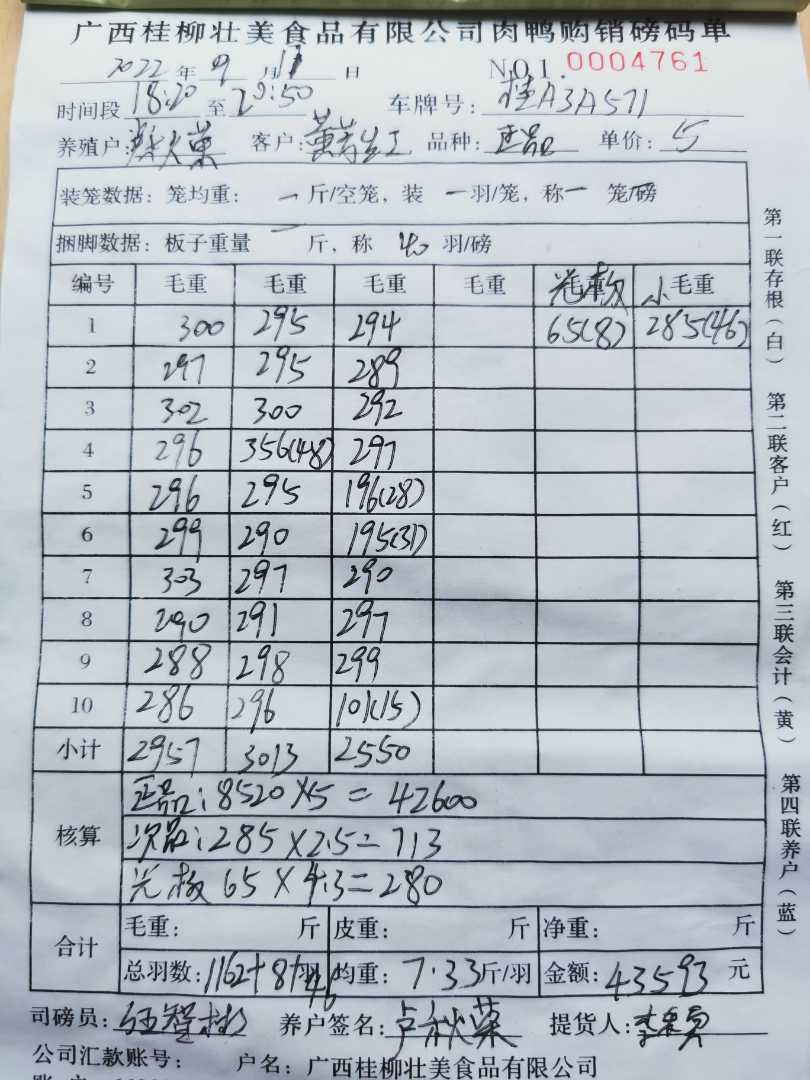 广西桂柳壮美食品有限公司肉鸭购销磅码单
2022年9月11日 NO1.0004761
时间段18:20至20:50 车牌号:桂A3A571
养殖户: 客户: 品种:正品 单价:5
装笼数据:笼均重:一斤/空笼,装一羽/笼,称一笼/磅
捆脚数据:板子重量一斤,称40羽/磅
编号 毛重 毛重 毛重 毛重 光板 小毛重
1 300 295 294 65(8) 285(46)
2 297 295 289
3 302 300 292
4 296 356(48) 297
5 296 295 196(28)
6 299 290 195(31)
7 303 297 290
8 290 291 297
9 288 298 299
10 286 296 101(15)
小计 2957 3013 2550
核算 正品:8520×5=42600
次品:285×2.5=713
光板65×4.3=280
合计 毛重: 斤 皮重: 斤 净重: 斤
总羽数:1162+8+46羽 均重:7.33斤/羽 金额:43593元
司磅员: 养户签名:卢秋菜 提货人:
公司汇款账号: 户名:广西桂柳壮美食品有限公司
第一联存根(白) 第二联客户(红) 第三联会计(黄) 第四联养户(蓝)